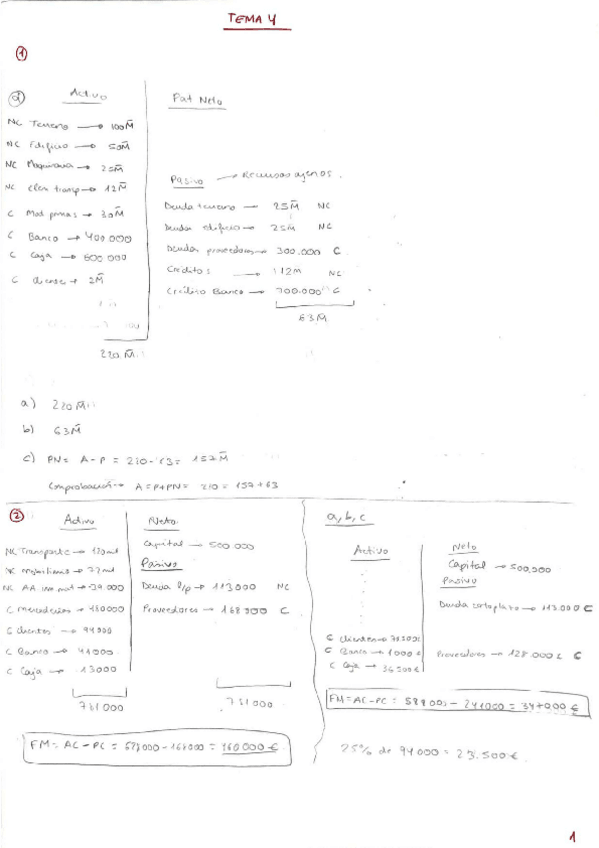 TEMA 4
①
a)
Activo
NC Terreno → 100M
NC Edificio → 50M
NC Maquinaria → 25M
NC elem transp → 12M
C Mat primas → 30M
C Banco → 400.000
C Caja → 600.000
C clientes → 2M
220 M
Pat Neto
Pasivo → Recursos ajenos.
Deuda terreno → 25M NC
Deudas edificio → 25M NC
Deudas proveedores → 300.000 C
Creditos → 112M NC
Crédito Banco → 700.000 C
63M
a) 220M
b) 63M
c) PN = A-P = 220-63 = 157M
Comprobación → A=P+PN = 220 = 157+63
②
Activo
NC Transporte → 120mil
NC mobiliario →
NC AA. inm mat → -39.000
C mercaderías →
C clientes → 94000
C Banco → 41000
C Caja → 13000
781000
Neto
Capital → 500.000
Pasivo
Deuda l/p → 113000 NC
Proveedores → 168000 C
781000
FM = AC - PC = - 168000 = 160000 €
a, b, c
Activo
C clientes →
C Banco → 1000 €
C Caja → 36500 €
Neto
Capital → 500.000
Pasivo
Deuda corto plazo → 113.000 C
Proveedores → 128.000 € C
FM = AC - PC = 588000 - 241000 = 347000 €
25% de 94000 = 23.500 €
1